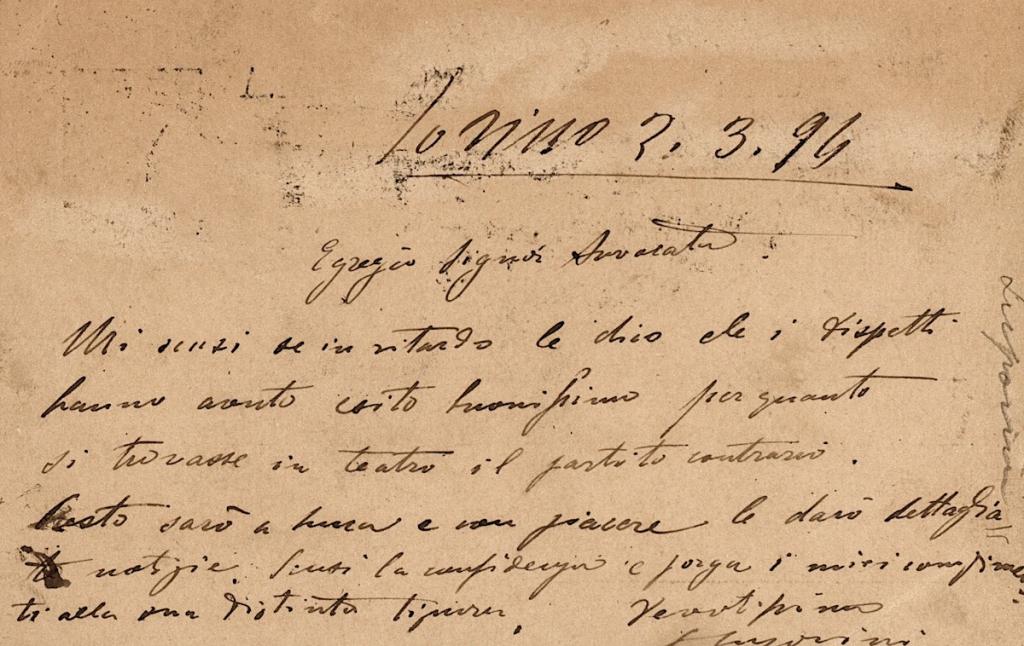 Torino 2. 3. 94
Egregio Signor Avvocato
Mi scusi se in ritardo le dico che i dispetti
hanno avuto esito buonissimo per quanto
si trovasse in teatro il partito contrario.
Presto sarò a Lucca e con piacere le darò dettaglia
te notizie. Scusi la confidenza e porga i miei complimen
ti alla sua distinta Signora.
Devotissimo